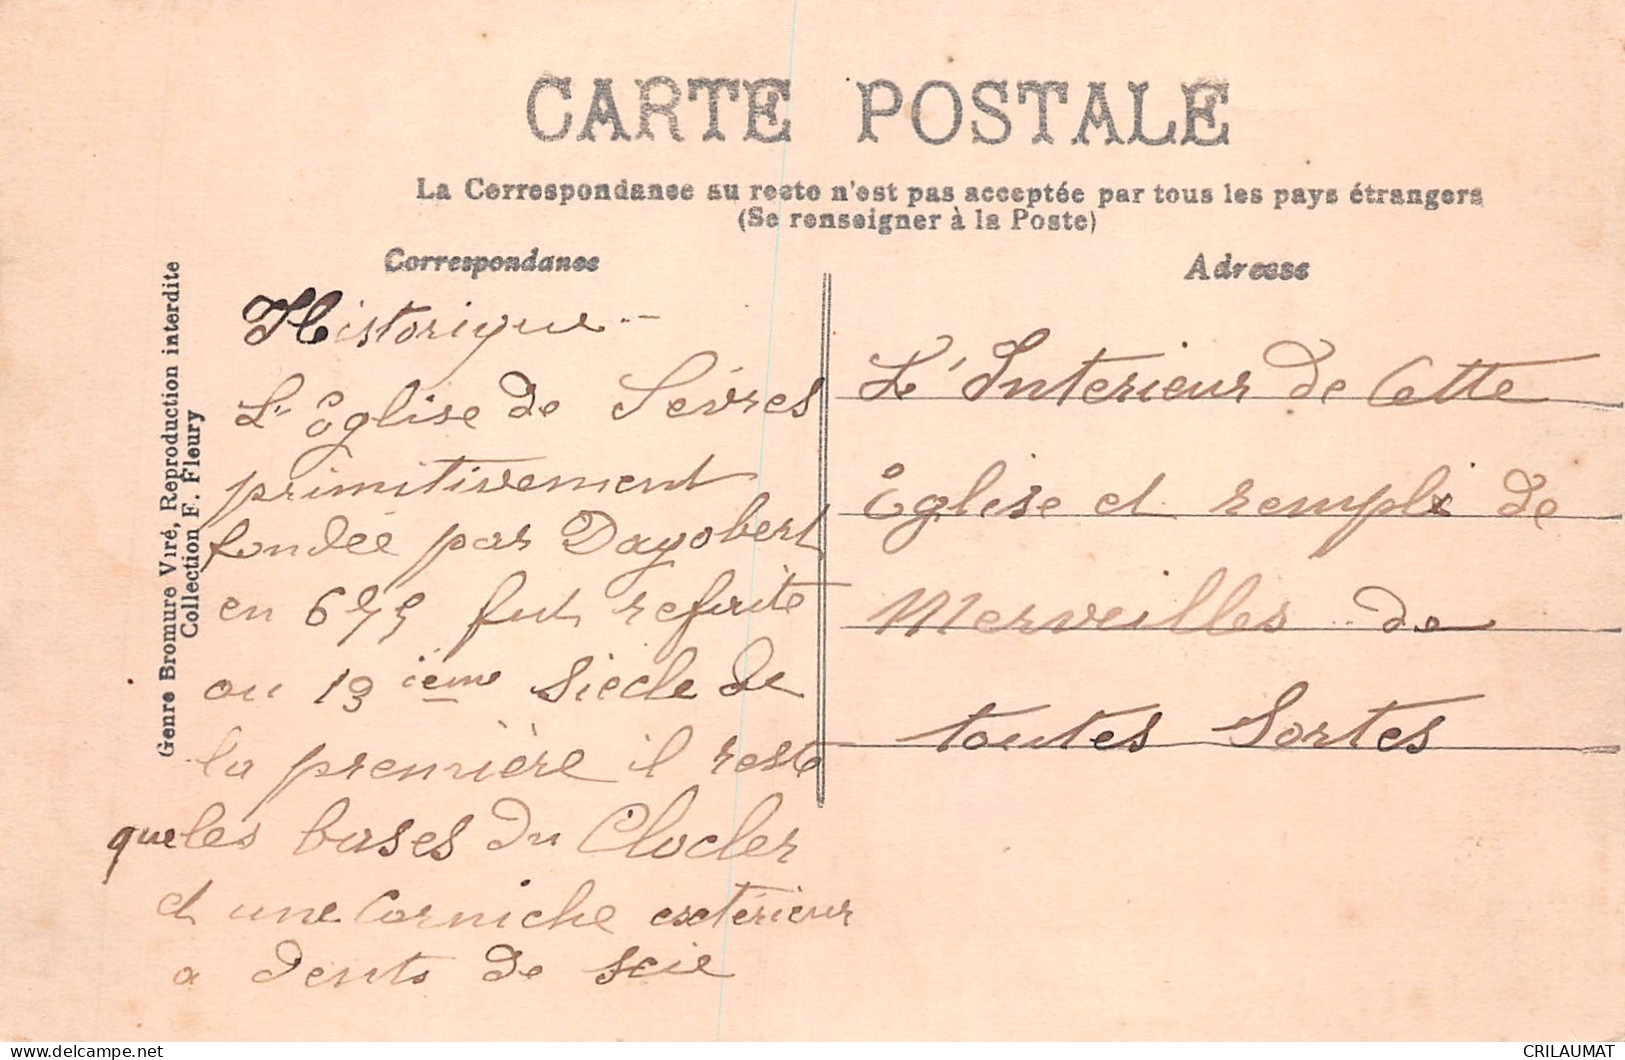 CARTE POSTALE
La Correspondance au recto n'est pas acceptée par tous les pays étrangers
(Se renseigner à la Poste)
Correspondance
Adresse
Genre Bromure Viré, Reproduction interdite
Collection F. Fleury
Historique
L'église de Sèvres
primitivement
fondée par Dagobert
en 675 fut refaite
au 13 ième Siècle de
la première il reste
que les bases du Clocher
et une Corniche extérieur
a dents de scie
L'Interieur de Cette
Eglise et rempli de
Merveilles de
toutes Sortes
CRILAUMAT